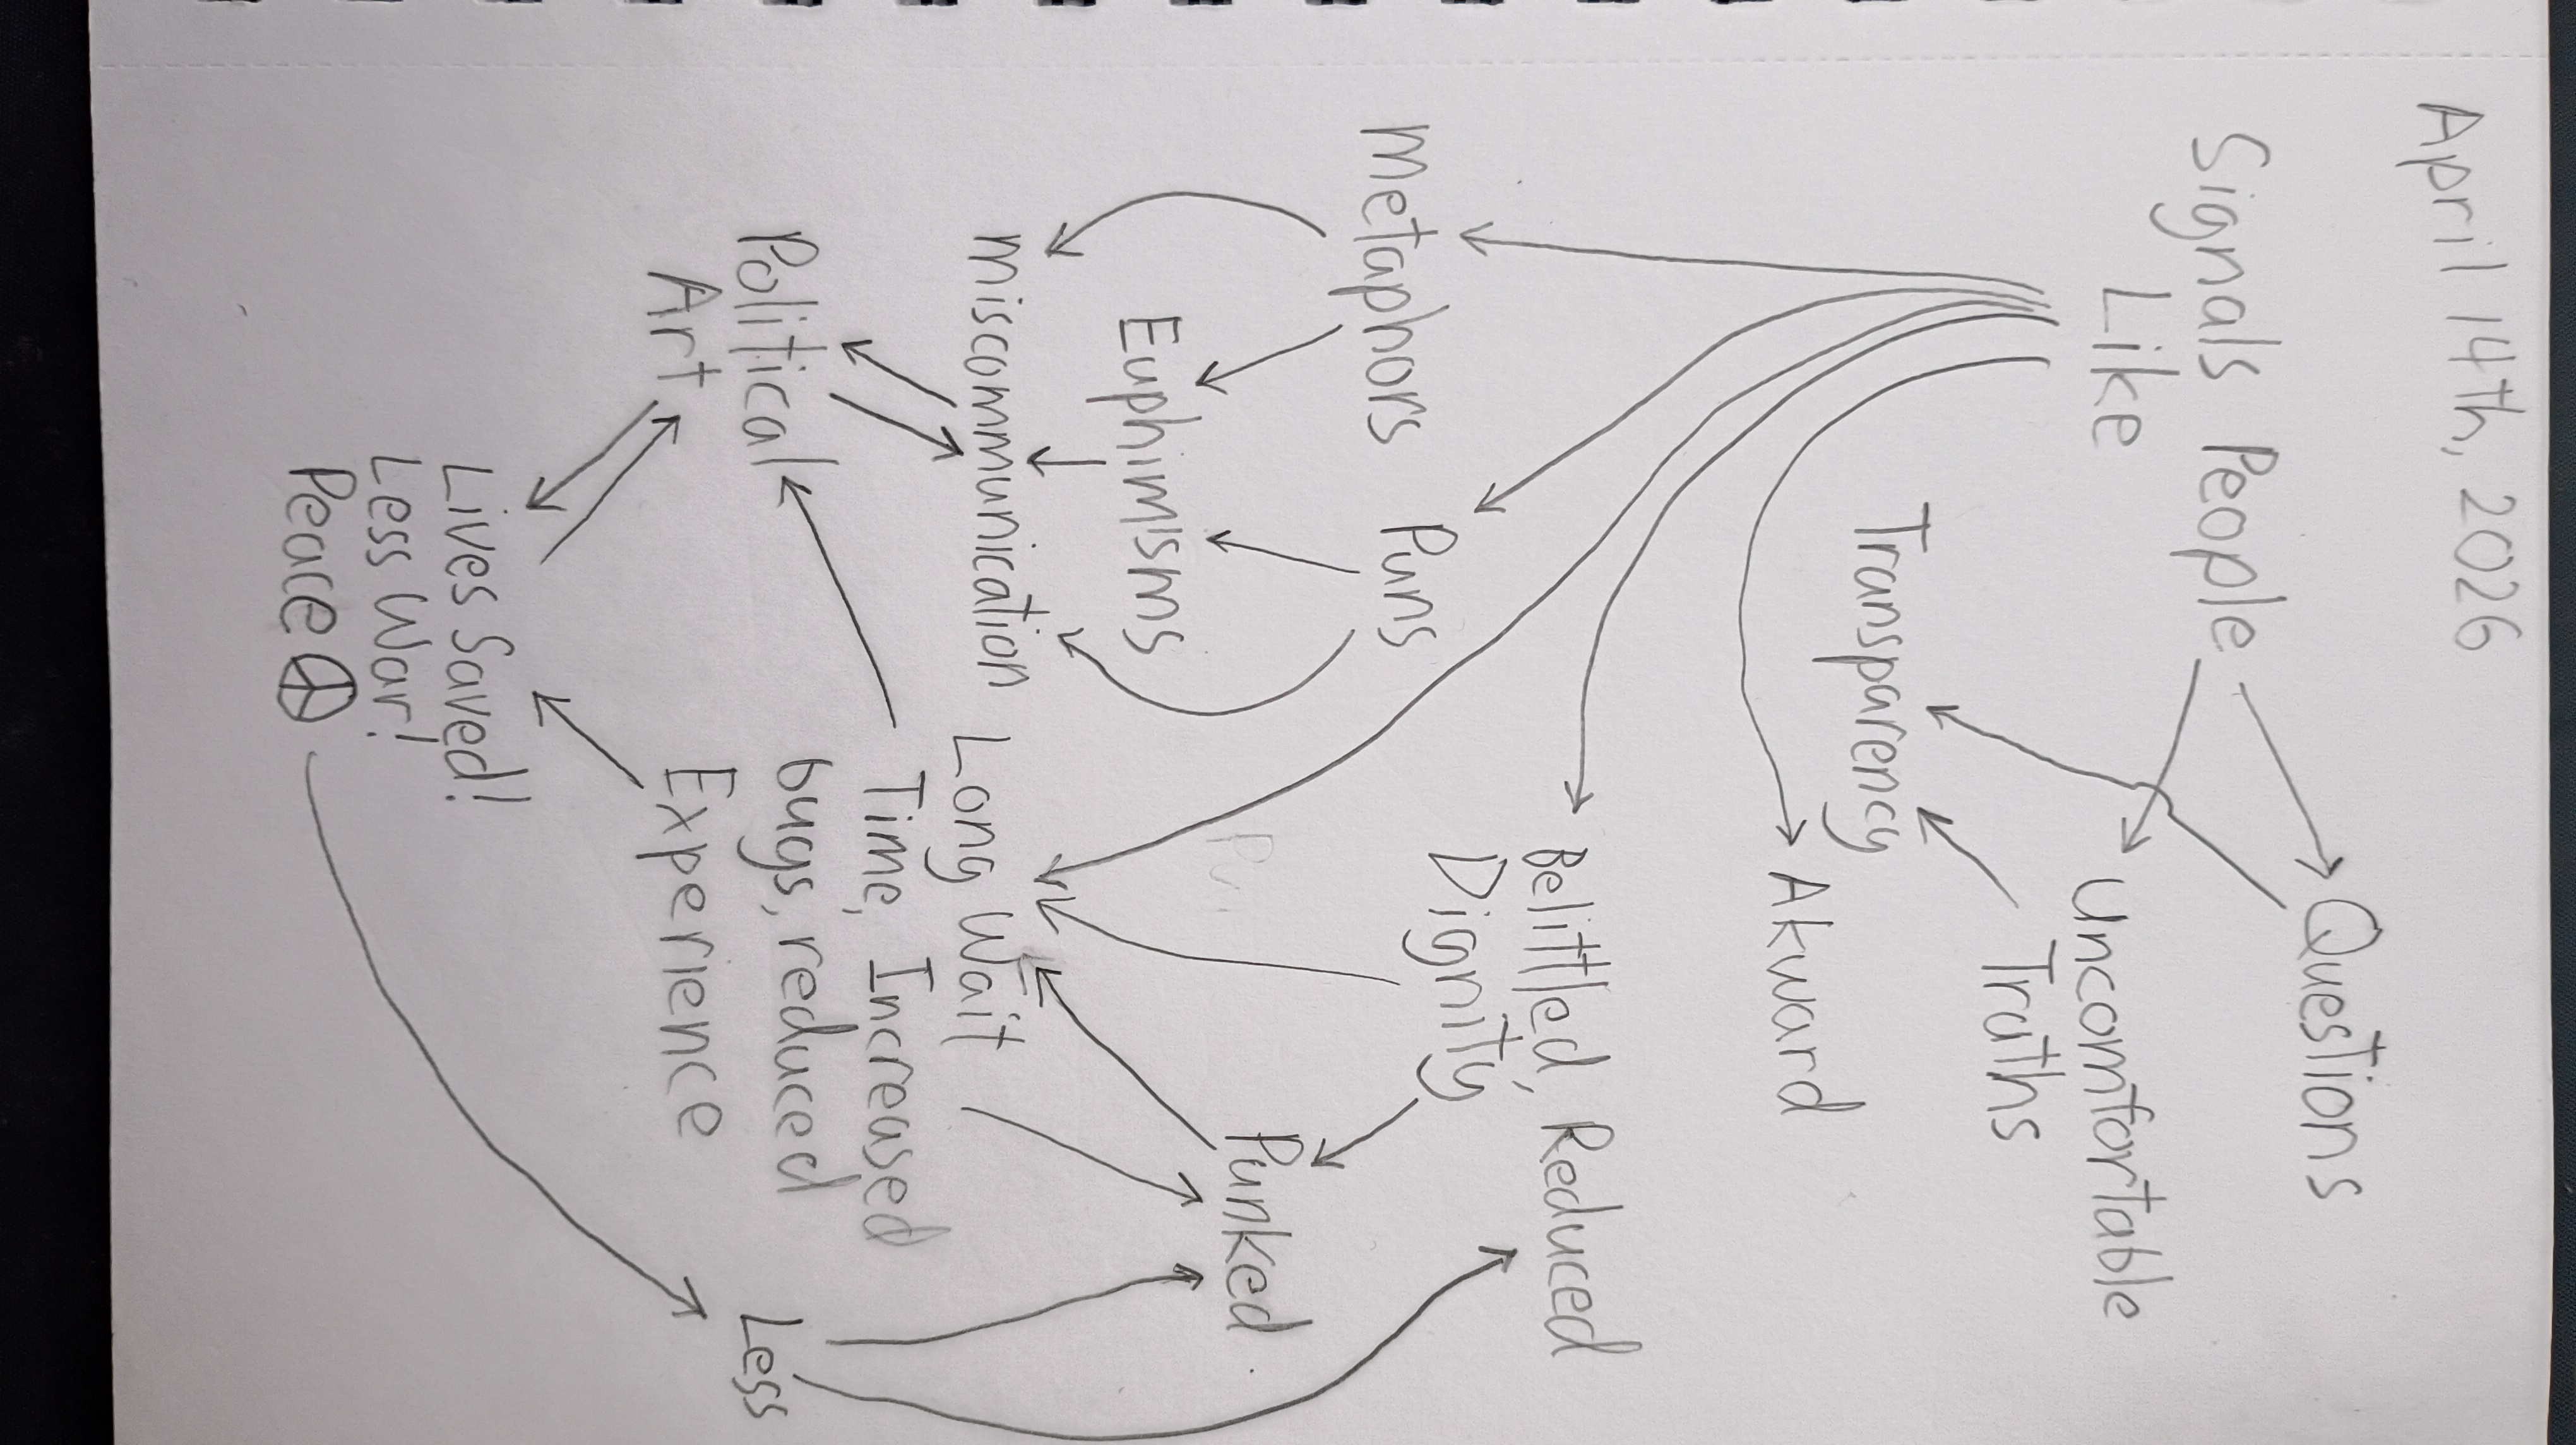 April 14th, 2026
Questions
Signals People
Like
Uncomfortable
Truths
Transparency
Akward
Belittled, Reduced
Dignity
Metaphors
Puns
Punked
Euphimisms
miscommunication
Long Wait
Time, Increased
bugs, reduced
Experience
Political
Art
Less
Lives Saved!
Less War!
Peace